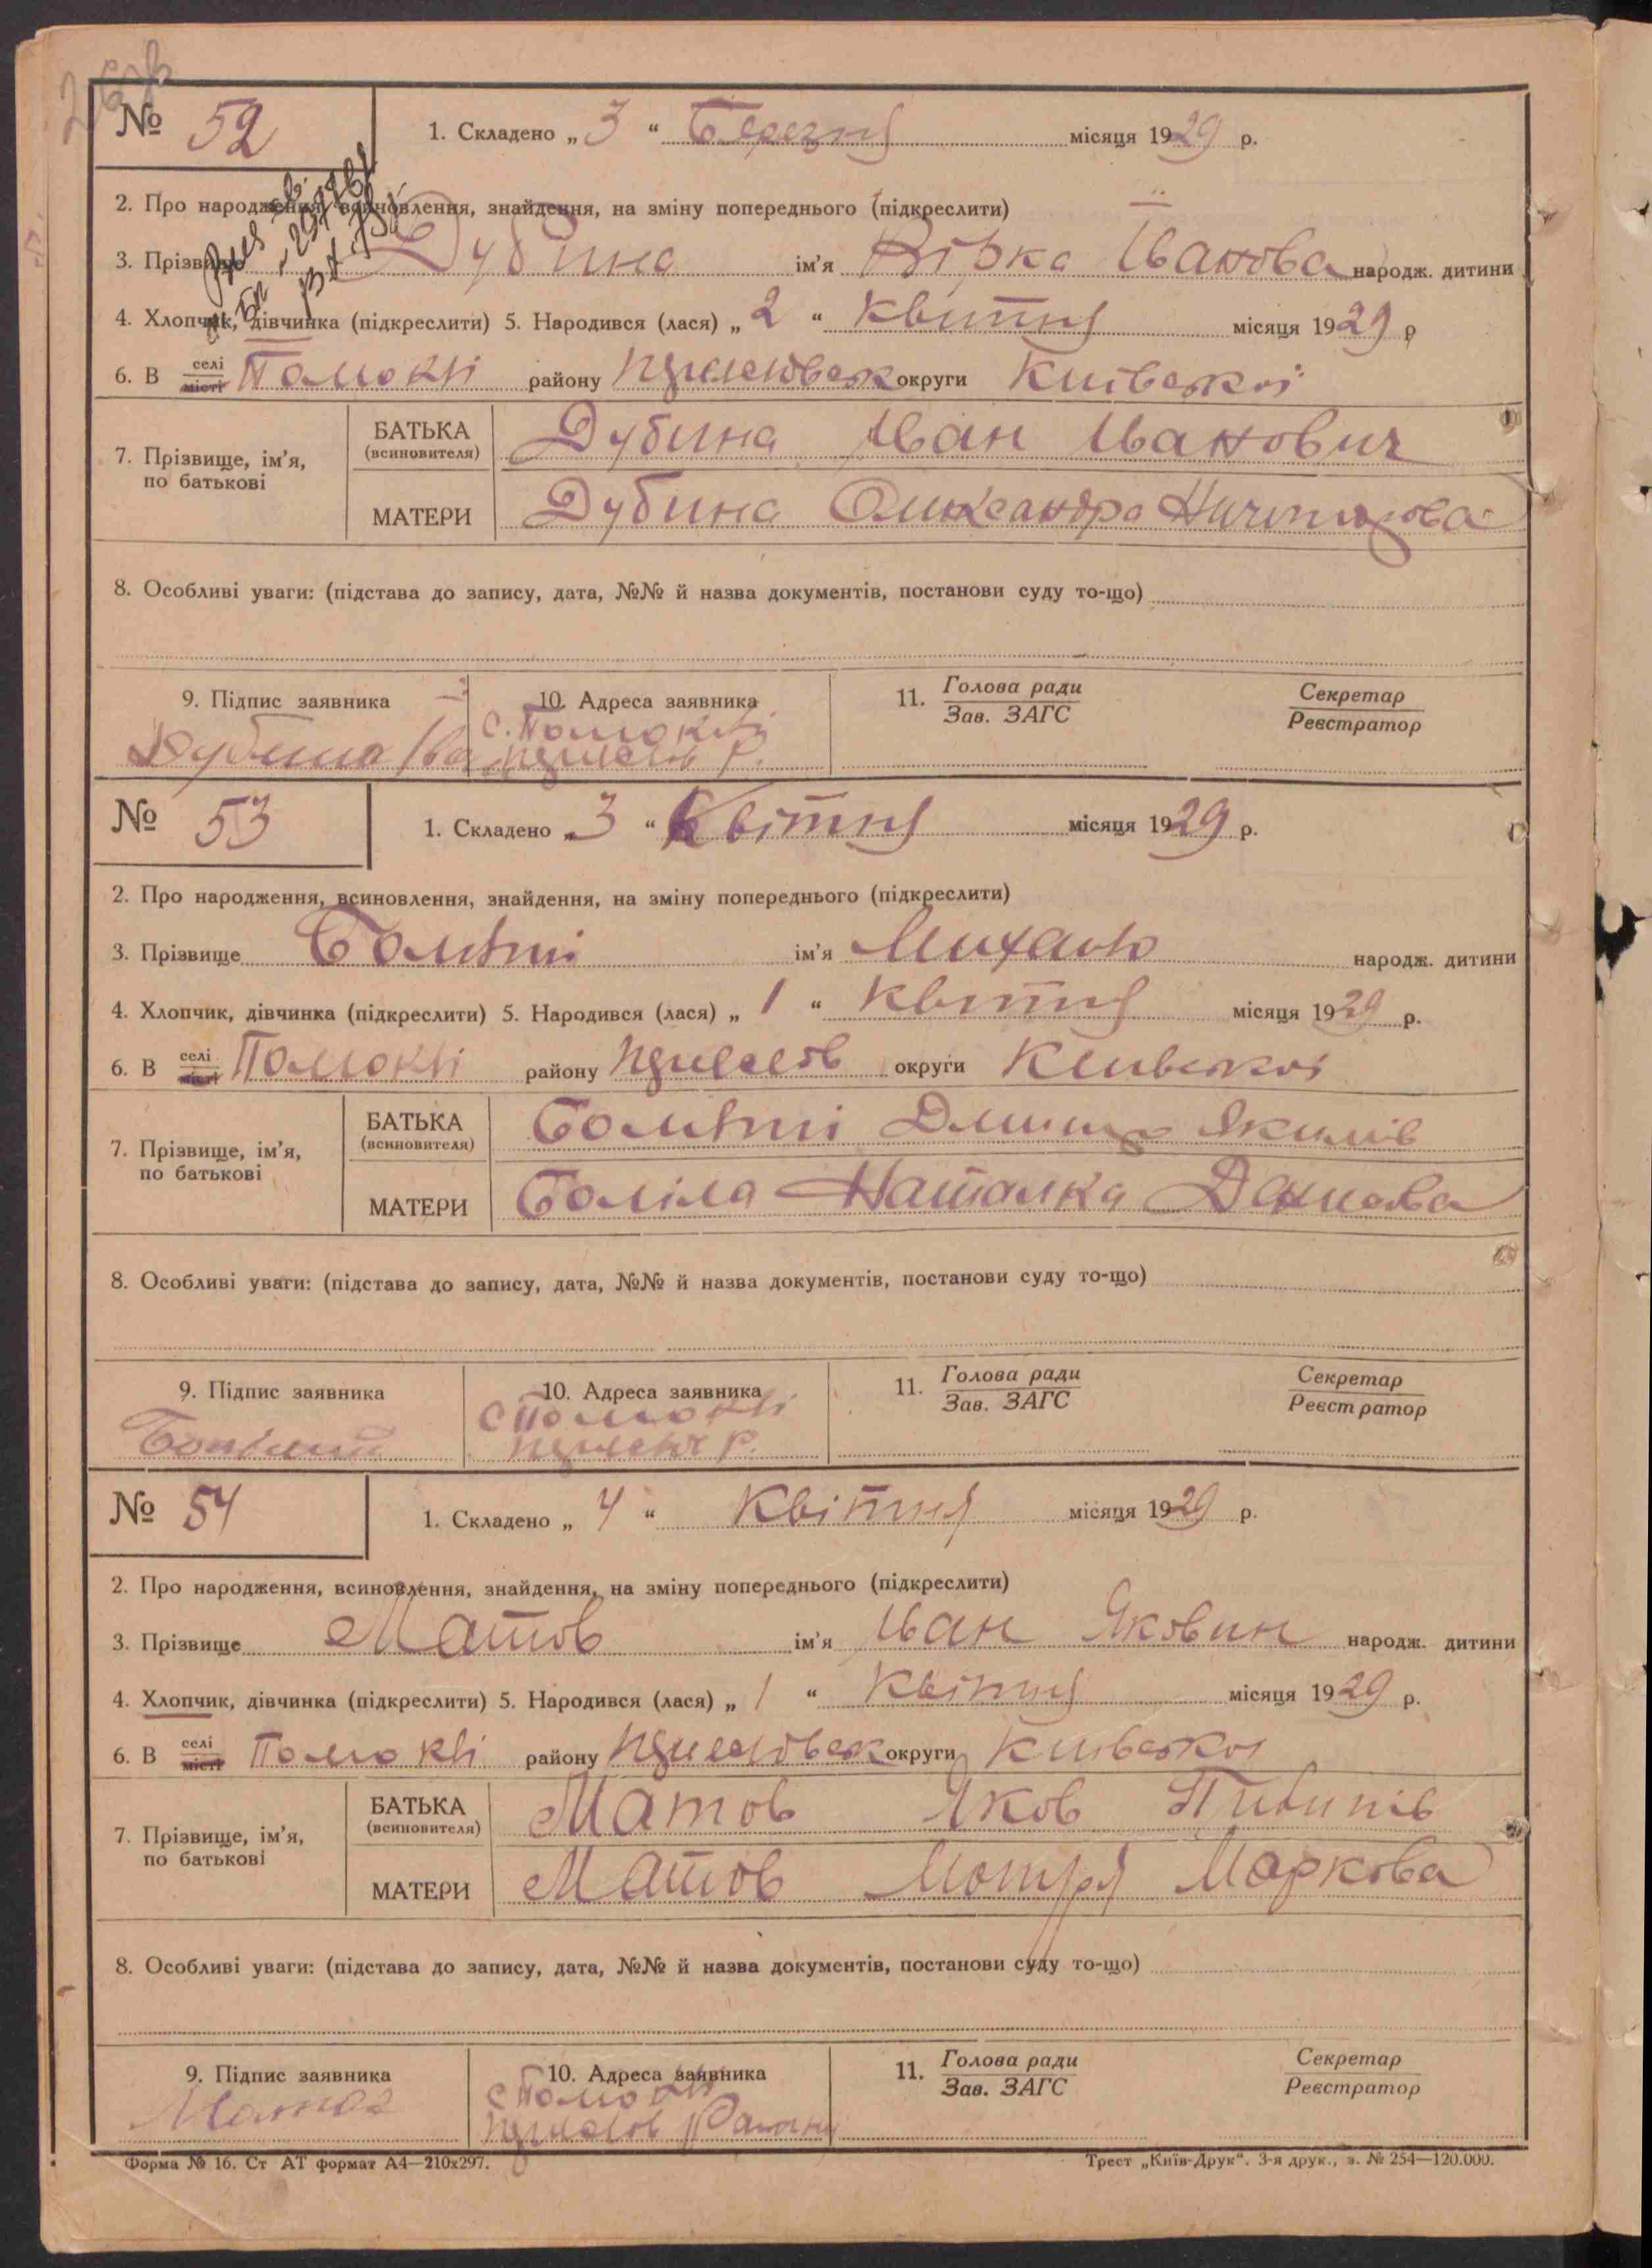 № 52
1. Складено „ 3 “ Березня місяця 1929 р.
2. Про народження, всиновлення, знайдення, на зміну попереднього (підкреслити)
3. Прізвище Дубина ім'я Вірка Іванова народж. дитини
4. Хлопчик, дівчинка (підкреслити) 5. Народився (лася) „ 2 “ Квітня місяця 1929 р
6. В селі місті Помоклі району округи Київської
7. Прізвище, ім'я, по батькові
БАТЬКА (всиновителя) Дубина Іван Іванович
МАТЕРИ Дубина Олександра
8. Особливі уваги: (підстава до запису, дата, №№ й назва документів, постанови суду то-що)
9. Підпис заявника 10. Адреса заявника 11. Голова ради Зав. ЗАГС Секретар Реєстратор
Дубина с. Помоклі
№ 53
1. Складено „ 3 “ Квітня місяця 1929 р.
2. Про народження, всиновлення, знайдення, на зміну попереднього (підкреслити)
3. Прізвище ім'я Михайло народж. дитини
4. Хлопчик, дівчинка (підкреслити) 5. Народився (лася) „ 1 “ Квітня місяця 1929 р.
6. В селі місті Помоклі району округи Київської
7. Прізвище, ім'я, по батькові
БАТЬКА (всиновителя) Якимів
МАТЕРИ Наталка
8. Особливі уваги: (підстава до запису, дата, №№ й назва документів, постанови суду то-що)
9. Підпис заявника 10. Адреса заявника 11. Голова ради Зав. ЗАГС Секретар Реєстратор
с Помоклі
№ 54
1. Складено „ 4 “ Квітня місяця 1929 р.
2. Про народження, всиновлення, знайдення, на зміну попереднього (підкреслити)
3. Прізвище Матов ім'я Іван Яковин народж. дитини
4. Хлопчик, дівчинка (підкреслити) 5. Народився (лася) „ 1 “ Квітня місяця 1929 р.
6. В селі місті Помоклі району округи Київської
7. Прізвище, ім'я, по батькові
БАТЬКА (всиновителя) Матов Яков
МАТЕРИ Матов Мотря Маркова
8. Особливі уваги: (підстава до запису, дата, №№ й назва документів, постанови суду то-що)
9. Підпис заявника 10. Адреса заявника 11. Голова ради Зав. ЗАГС Секретар Реєстратор
Матов с Помоклі
Форма № 16. Ст АТ формат А4—210х297. Трест „Київ-Друк“. 3-я друк., з. № 254—120.000.